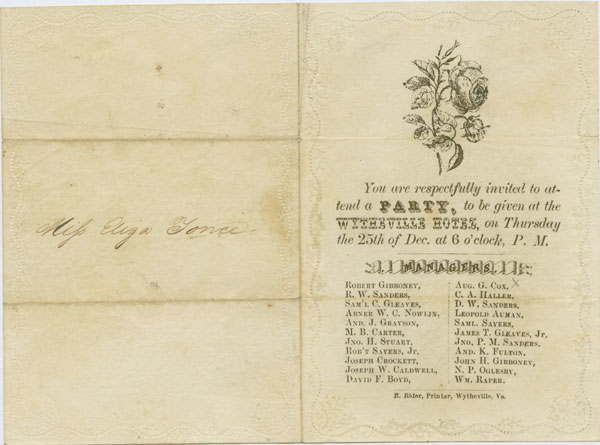 Miss Eliza
You are respectfully invited to at-
tend a PARTY, to be given at the
WYTHEVILLE HOTEL, on Thursday
the 25th of Dec. at 6 o'clock, P. M.
MANAGERS.
Robert Gibboney,
R. W. Sanders,
Sam'l C. Gleaves,
Abner W. C. Nowlin,
And. J. Grayson,
M. B. Carter,
Jno. H. Stuart,
Rob't Sayers, Jr.
Joseph Crockett,
Joseph W. Caldwell,
David F. Boyd,
Aug. G. Cox,
C. A. Haller,
D. W. Sanders,
Leopold Auman,
Saml. Sayers,
James T. Gleaves, Jr.
Jno. P. M. Sanders,
And. K. Fulton,
John H. Gibboney,
N. P. Oglesby,
Wm. Raper.
Rider, Printer, Wytheville, Va.